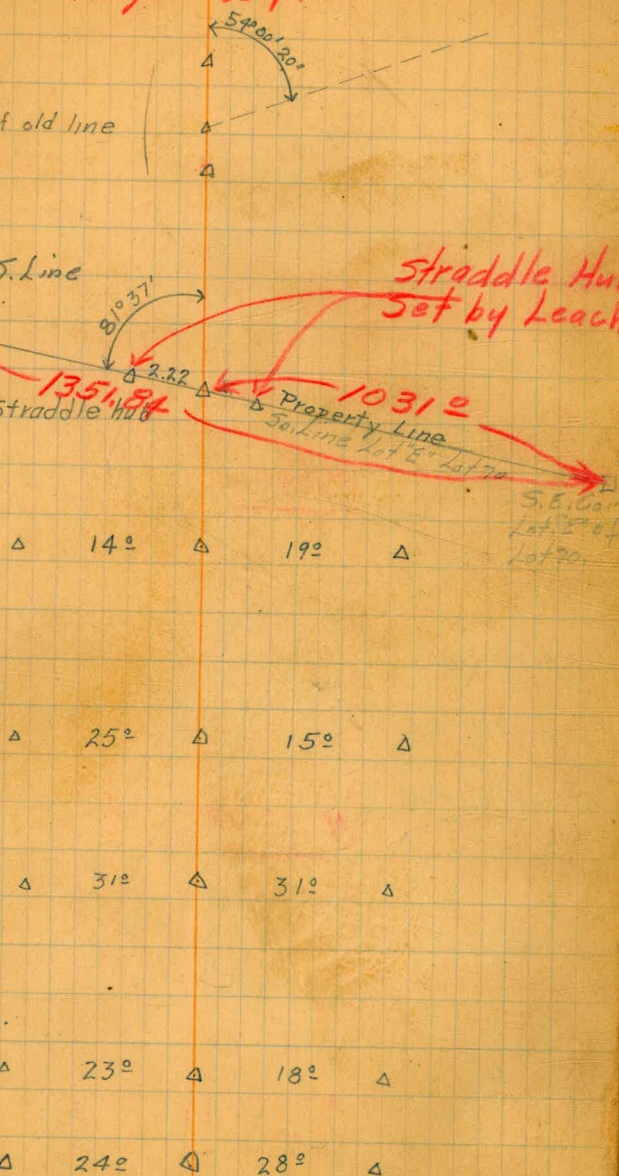 54°00'20"
f old line
S. Line
81°37'
Straddle Hu
Set by Leach
2.22
1351.84
1031º
Straddle hub
Property Line
So. Line Lot "E" Lot 70
S.E. Co
Lot "E" of
Lot 70.
14º 19º
25º 15º
31º 31º
23º 18º
24º 28º